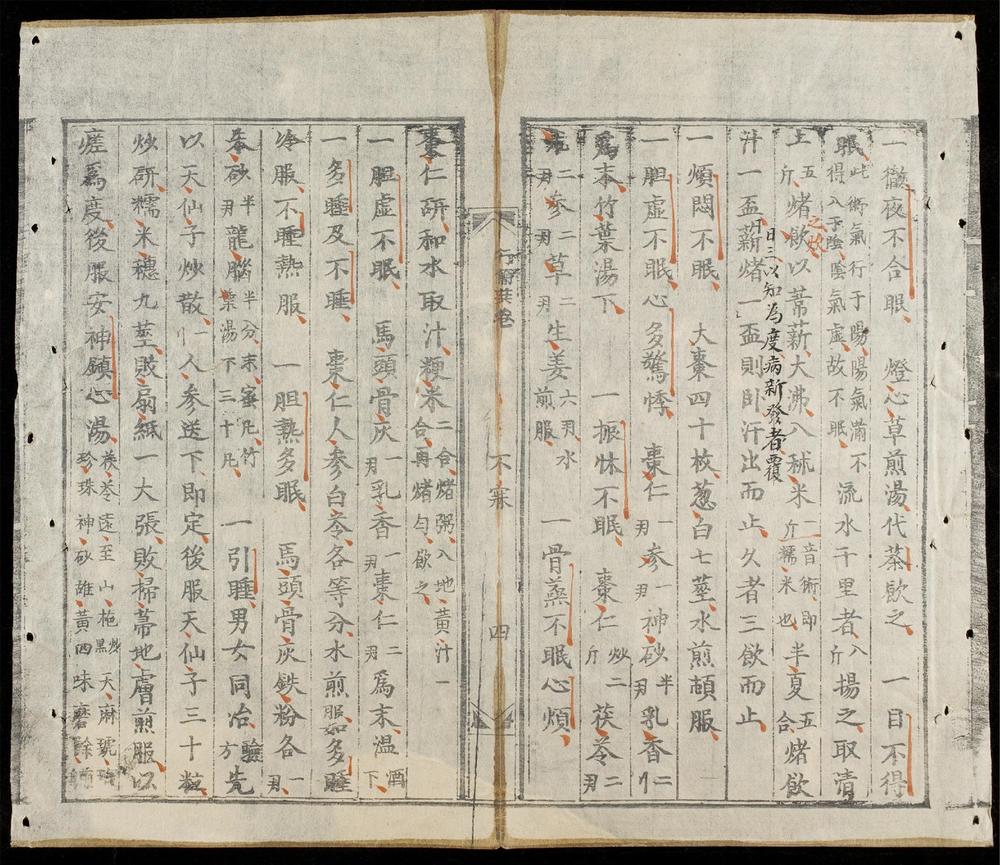 一徹夜不合眠 燈心草煎湯代茶飲之 一目不得
眠此術氣行于陽陽氣滿不得入于陰陰氣虛故不眠 流水千里者八斤揚之取清
上五斤㷖飮以葦薪大沸入秫米二斤音術即糯米也半夏五合㷖飮
之炊
汁一盃薪㷖一盃則卧汗出而止久者三飮而止
日三以知為度病新發者覆
一煩悶不眠 大棗四十枚葱白七莖水煎頓服
一胆虛不眠心多驚悸 棗仁一刄參一刄神砂半刄乳香二
爲末竹葉湯下 一振怵不眠 棗仁炒二斤茯苓二刄
二刄參二刄草二刄生姜六刄水煎服 一骨蒸不眠心煩
不寐 四
棗仁研和水取汁粳米二合㷖粥入地黃汁一合再㷖匀飮之
一胆虛不眠 馬頭骨灰一刄乳香一刄棗仁二刄爲末温酒下
一多睡及不睡 棗仁人參白苓各等分水煎服如多睡
冷服不睡熱服 一胆熱多眠 馬頭骨灰鉄粉各一刄
朱砂半刄龍腦半分末蜜凡竹葉湯下三十凡 一引睡男女同治驗方先
以天仙子炒散一人參送下即定後服天仙子三十粒
炒研糯米穗九莖敗扇紙一大張敗掃幕地膚煎服以
瘥爲度後服安神鎮心湯茯苓遠至山梔炒黑天麻琥珀珍珠神砂雄黃四味磨